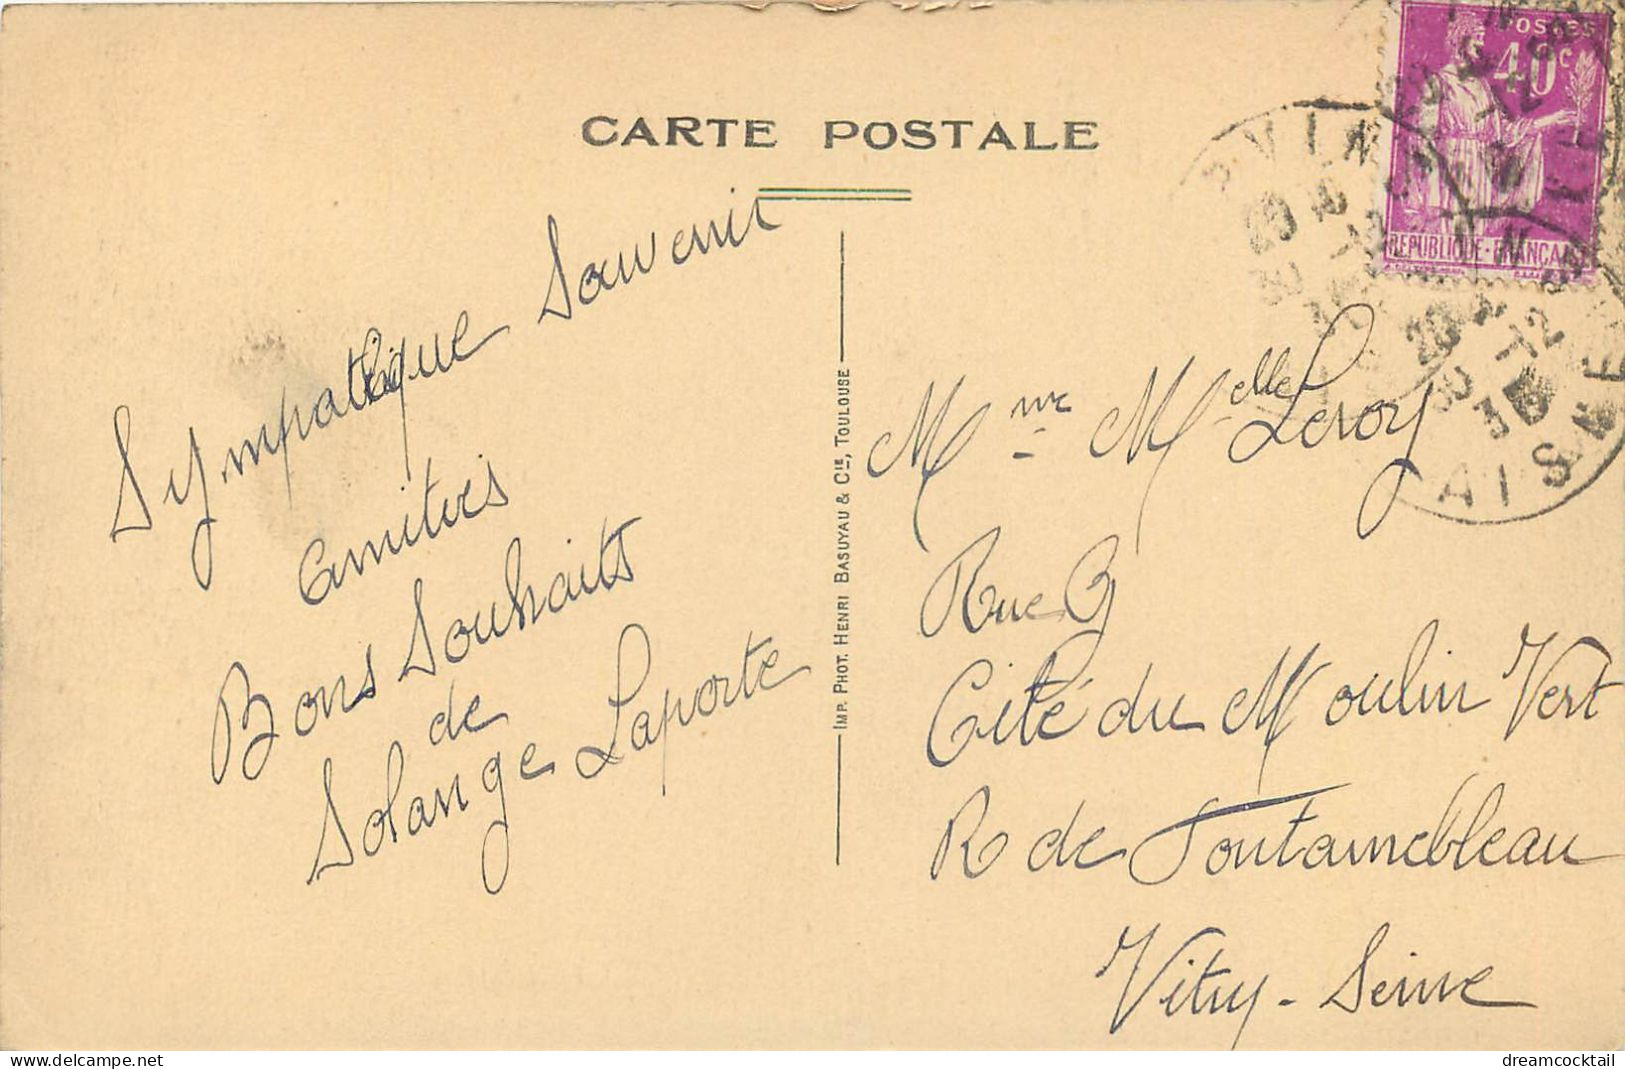 CARTE POSTALE
POSTES
40c
REPUBLIQUE-FRANCAISE
Sympathique Souvenir
Amitiés
Bons Souhaits
de
Solange Laporte
IMP. PHOT. HENRI BASUYAU & CIE, TOULOUSE
Mme Melle Leroy
Rue G
Cité du Moulin Vert
R de Fontainebleau
Vitry - Seine
dreamcocktail
delcampe.net